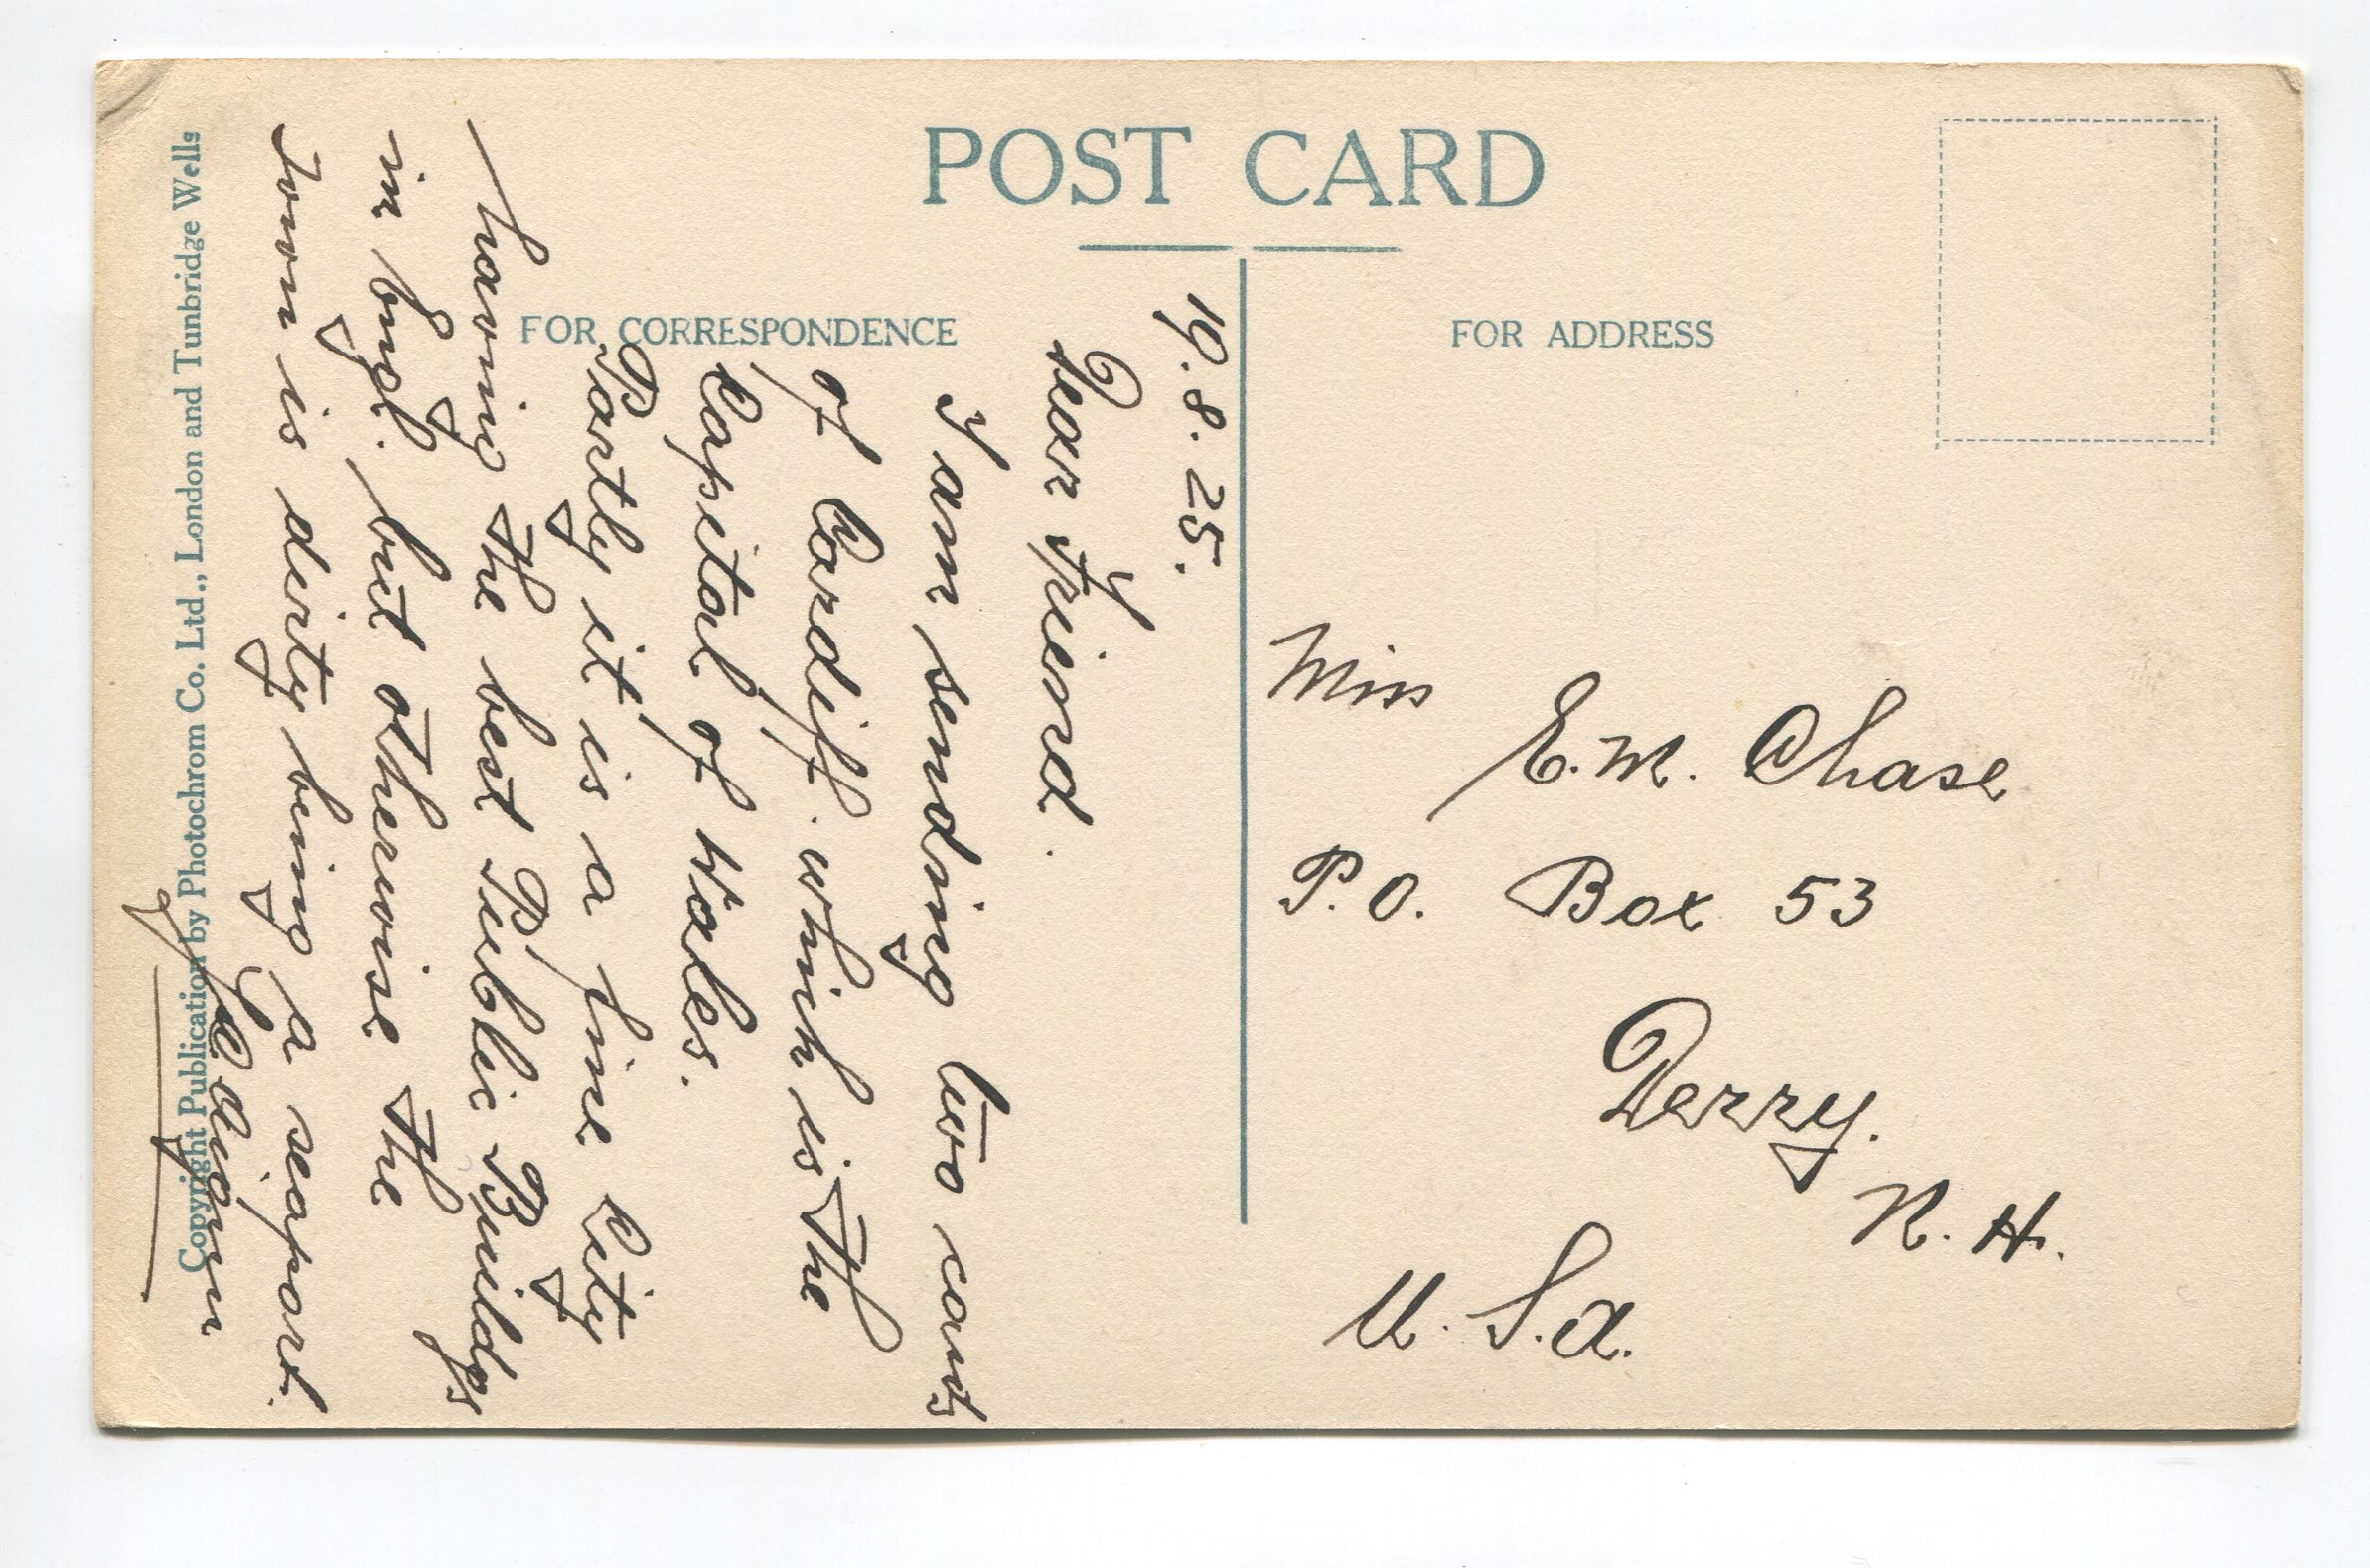 POST CARD
FOR CORRESPONDENCE
FOR ADDRESS
19.8.25.
Dear Friend.
I am sending two cards
of Cardiff. which is the
Capital of Wales.
Partly it is a fine City
having the best Public Buildgs
in Engl. but otherwise the
Town is dirty being a seaport.
Miss
E.M. Chase
P.O. Box 53
Derry.
N. H.
U.S.A.
Copyright Publication by Photochrom Co. Ltd., London and Tunbridge Wells